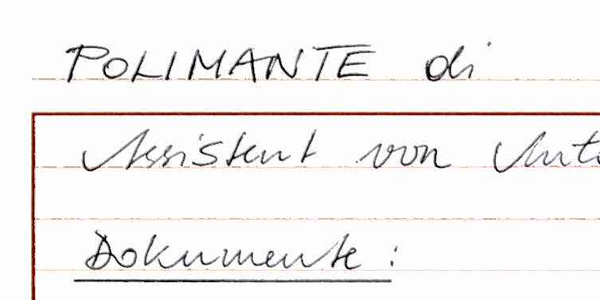 POLIMANTE di
Assistent von
Dokumente: